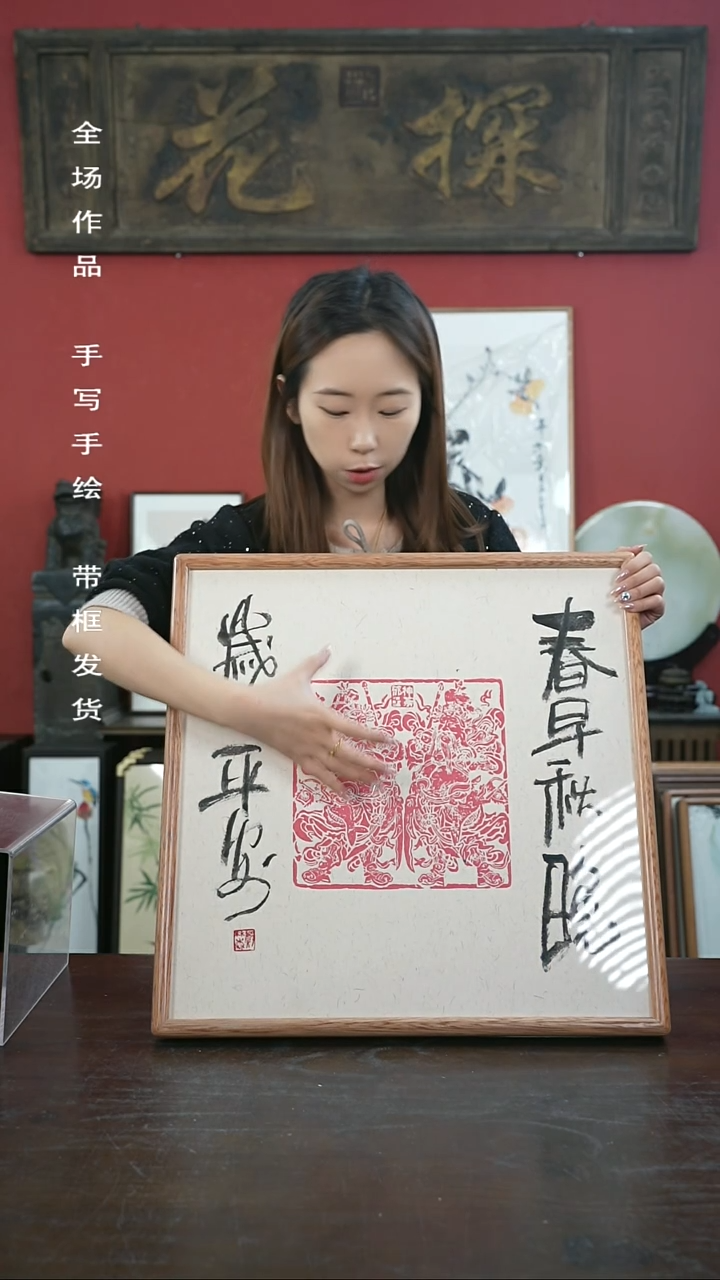 探花
全场作品 手写手绘 带框发货
春早秋晚
歲平安